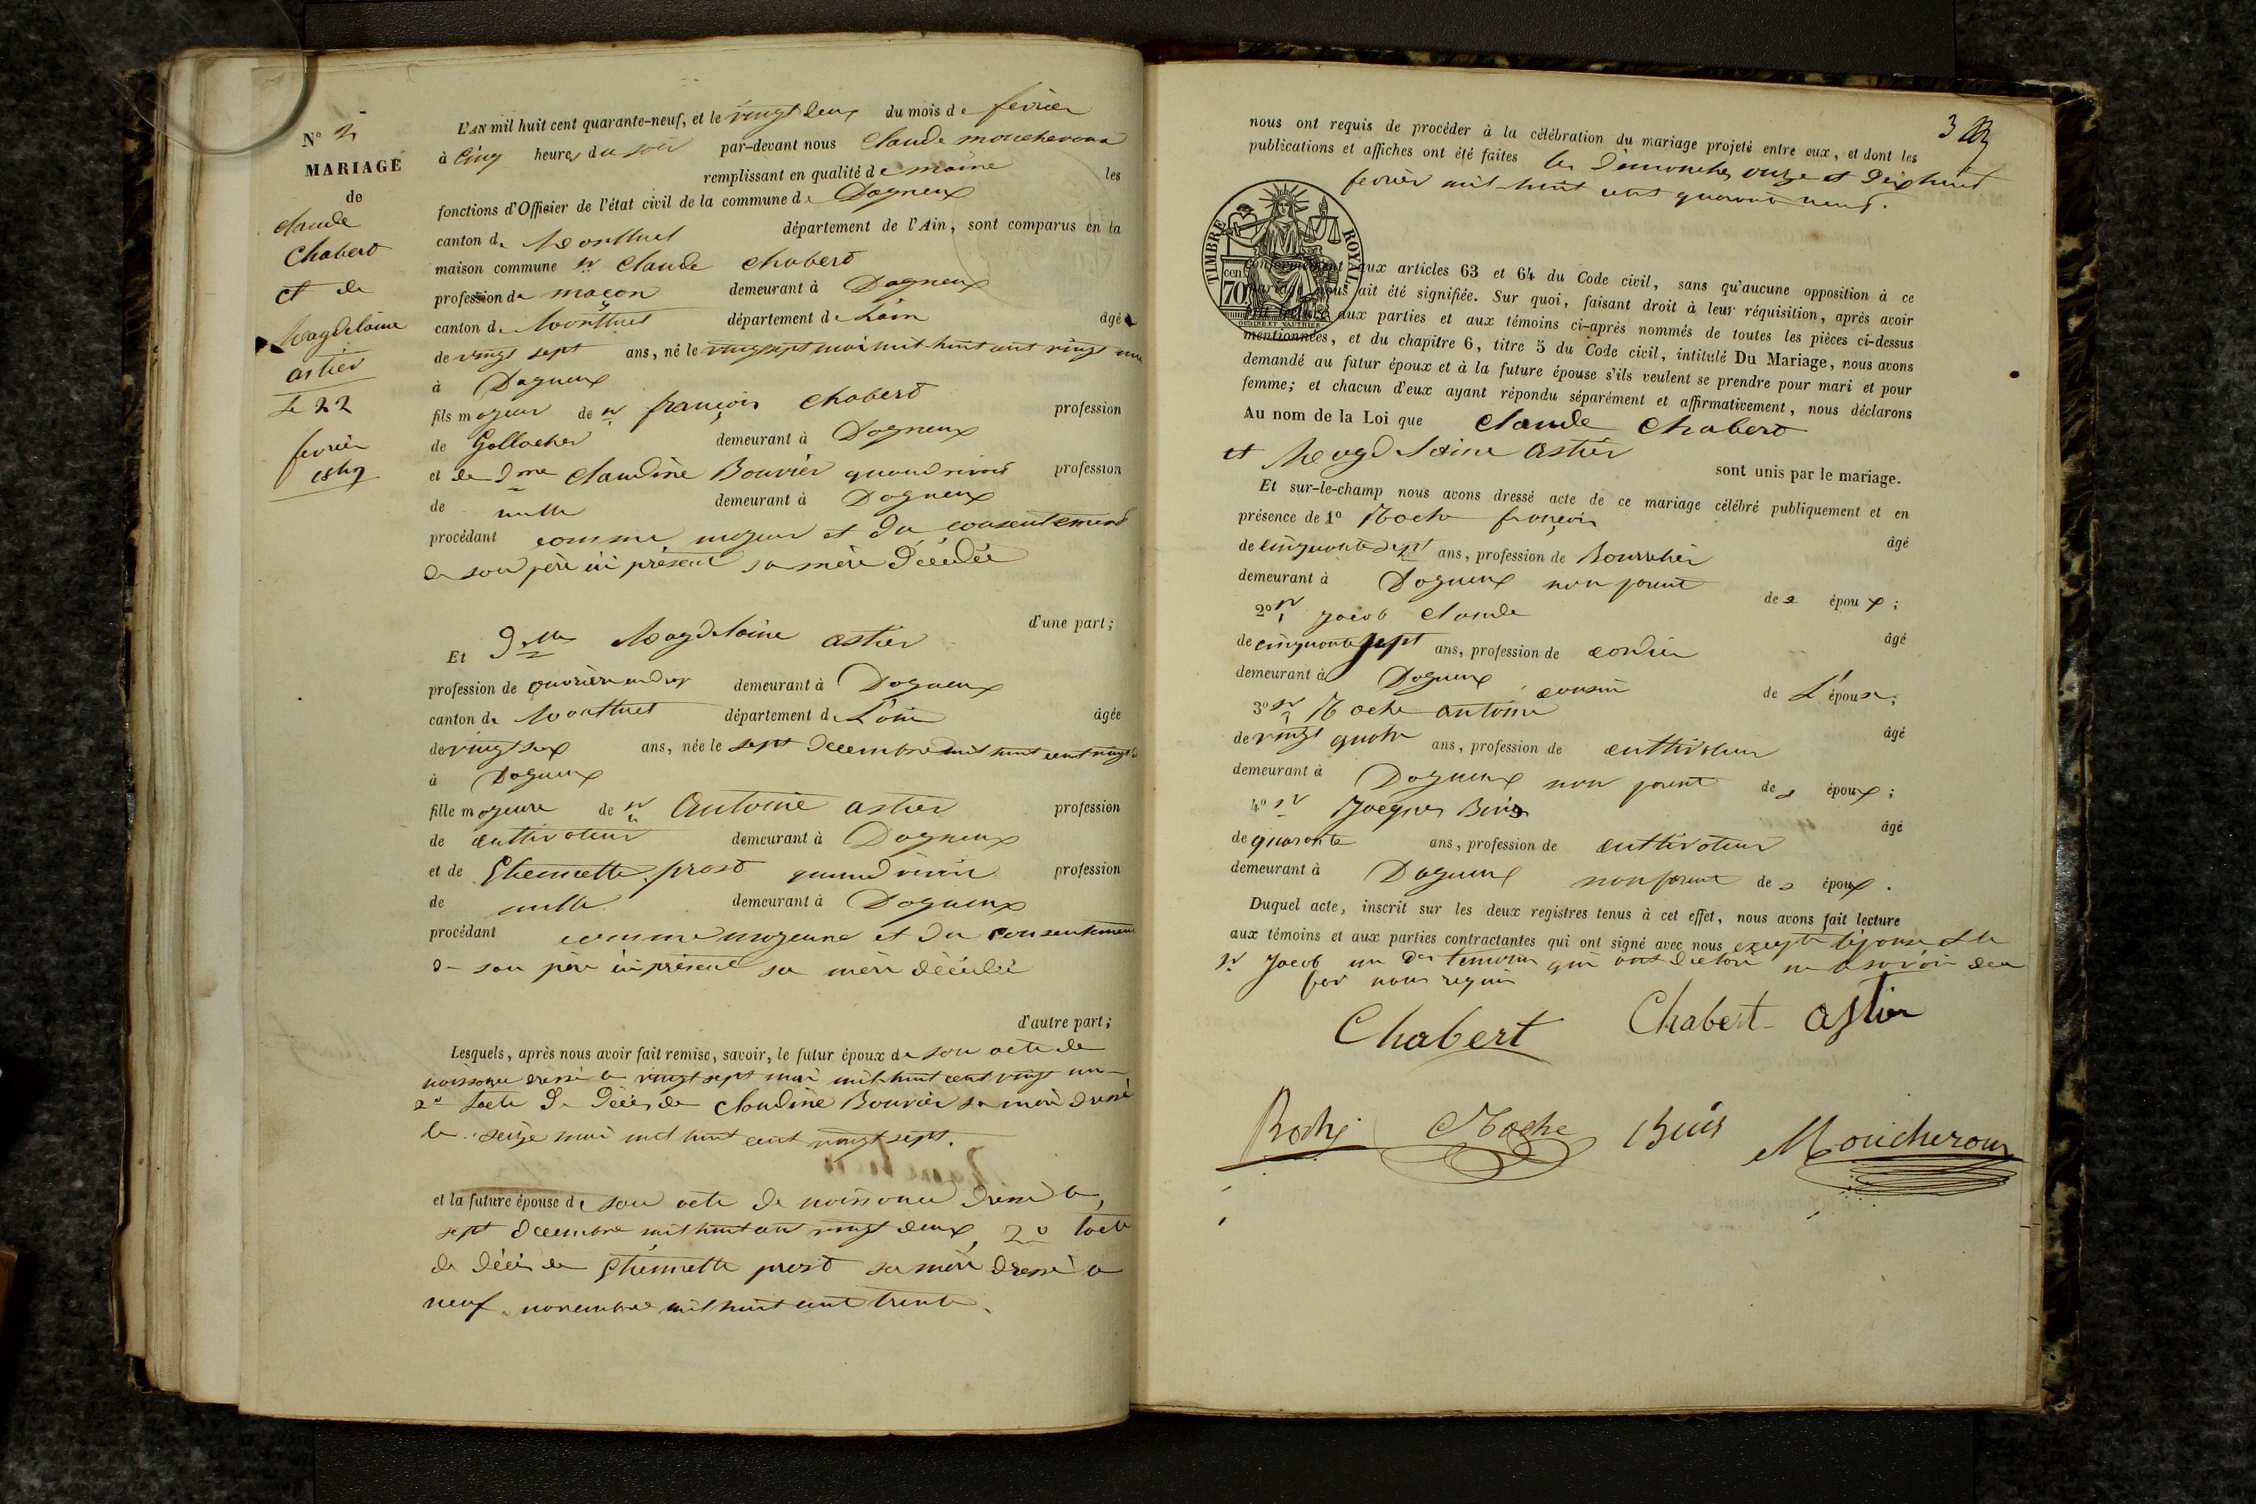 N° 2
MARIAGE
de
Claude
Chabert
et de
Magdelaine
astier
Le 22
fevrier
1849
L'AN mil huit cent quarante-neuf, et le vingt deux du mois de fevrier
à Cinq heures du soir par-devant nous Claude moucheroux
remplissant en qualité de maire les
fonctions d'Officier de l'état civil de la commune de Dagneux
canton de Montluel département de l'Ain, sont comparus en la
maison commune Sr Claude Chabert
profession de maçon demeurant à Dagneux
canton de Montluel département de L'ain âgé
de vingt sept ans, né le vingt sept mai mil huit cent vingt un
à Dagneux
fils majeur de Sr françois Chabert profession
de Gallocher demeurant à Dagneux
et de Dme Claudine Bouvier quand vivait profession
de nulle demeurant à Dagneux
procédant comme majeur et du consentement
de son père ici présent sa mère décédée
d'une part;
Et Dlle Magdelaine astier
profession de ouvrière en demeurant à Dagneux
canton de Montluel département de L'ain âgée
de vingt six ans, née le sept decembre mil huit cent vingt
à Dagneux
fille majeure de Sr Antoine astier profession
de cultivateur demeurant à Dagneux
et de Ethiennette prost quand vivait profession
de nulle demeurant à Dagneux
procédant comme majeure et du consentement
de son père ici présent sa mère décédée
d'autre part;
Lesquels, après nous avoir fait remise, savoir, le futur époux de son acte de
naissance dressé le vingt sept mai mil huit cent vingt un
2° l'acte de décès de Claudine Bouvier sa mère dressé
le seize mai mil huit cent vingt sept.
et la future épouse de son acte de naissance dressé le
sept decembre mil huit cent vingt deux, 2° l'acte
de décès de Ethiennette prost sa mère dressé le
neuf novembre mil huit cent trente.
3
nous ont requis de procéder à la célébration du mariage projeté entre eux, et dont les
publications et affiches ont été faites les Dimanches onze et dix huit
fevrier mil huit cent quarante neuf.
TIMBRE ROYAL
cen
70
conformément aux articles 63 et 64 du Code civil, sans qu'aucune opposition à ce
mariage nous ait été signifiée. Sur quoi, faisant droit à leur réquisition, après avoir
fait lecture aux parties et aux témoins ci-après nommés de toutes les pièces ci-dessus
mentionnées, et du chapitre 6, titre 5 du Code civil, intitulé Du Mariage, nous avons
demandé au futur époux et à la future épouse s'ils veulent se prendre pour mari et pour
femme; et chacun d'eux ayant répondu séparément et affirmativement, nous déclarons
Au nom de la Loi que Claude Chabert
et Magdelaine Astier
sont unis par le mariage.
Et sur-le-champ nous avons dressé acte de ce mariage célébré publiquement et en
présence de 1° Roche françois
âgé
de cinquante sept ans, profession de Bourrelier
demeurant à Dagneux non parent des époux;
2° Sr Jacob Claude
âgé
de cinquante sept ans, profession de cordier
demeurant à Dagneux cousin de L'épouse;
3° Sr Roche antoine
âgé
de vingt quatre ans, profession de cultivateur
demeurant à Dagneux non parent des époux;
4° Sr Jacques Buis
âgé
de quarante ans, profession de cultivateur
demeurant à Dagneux non parent des époux.
Duquel acte, inscrit sur les deux registres tenus à cet effet, nous avons fait lecture
aux témoins et aux parties contractantes qui ont signé avec nous excepté l'épouse et le
Sr Jacob un des temoins qui ont declaré ne le savoir de ce
nous requis
Chabert Chabert astier
Roche Roche Buis Moucheroux